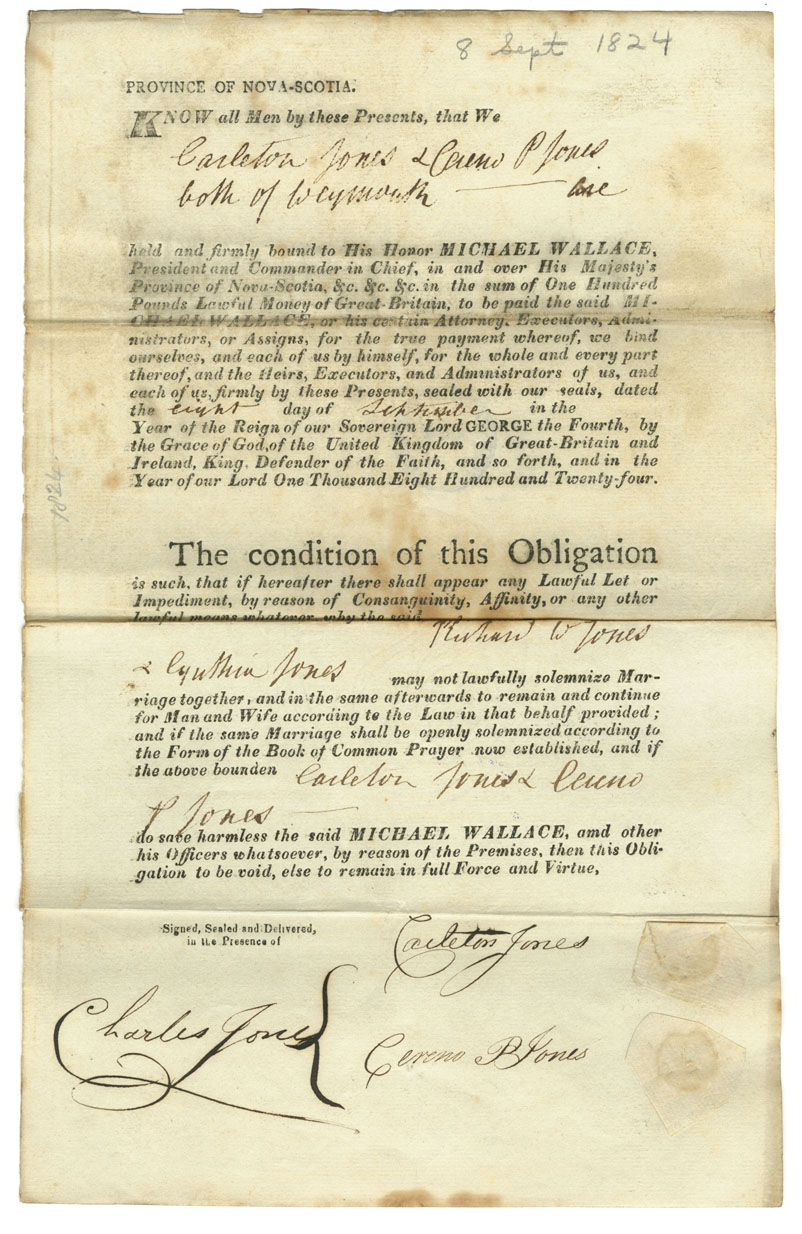 8 Sept 1824
PROVINCE OF NOVA-SCOTIA.
KNOW all Men by these Presents, that We
Carleton Jones & Cereno P Jones
both of Weymouth are
held and firmly bound to His Honor MICHAEL WALLACE,
President and Commander in Chief, in and over His Majesty's
Province of Nova-Scotia, &c. &c. &c. in the sum of One Hundred
Pounds Lawful Money of Great-Britain, to be paid the said MI-
CHAEL WALLACE, or his certain Attorney, Executors, Admi-
nistrators, or Assigns, for the true payment whereof, we bind
ourselves, and each of us by himself, for the whole and every part
thereof, and the Heirs, Executors, and Administrators of us, and
each of us, firmly by these Presents, sealed with our seals, dated
the eight day of September in the
Year of the Reign of our Sovereign Lord GEORGE the Fourth, by
the Grace of God, of the United Kingdom of Great-Britain and
Ireland, King, Defender of the Faith, and so forth, and in the
Year of our Lord One Thousand Eight Hundred and Twenty-four.
1824
The condition of this Obligation
is such, that if hereafter there shall appear any Lawful Let or
Impediment, by reason of Consanguinity, Affinity, or any other
lawful means whatever, why the said
Richard W Jones
& Cynthia Jones may not lawfully solemnize Mar-
riage together, and in the same afterwards to remain and continue
for Man and Wife according to the Law in that behalf provided;
and if the same Marriage shall be openly solemnized according to
the Form of the Book of Common Prayer now established, and if
the above bounden Carleton Jones & Cereno
P Jones
do save harmless the said MICHAEL WALLACE, amd other
his Officers whatsoever, by reason of the Premises, then this Obli-
gation to be void, else to remain in full Force and Virtue,
Signed, Sealed and Delivered,
in the Presence of
Carleton Jones
Charles Jones
Cereno P Jones